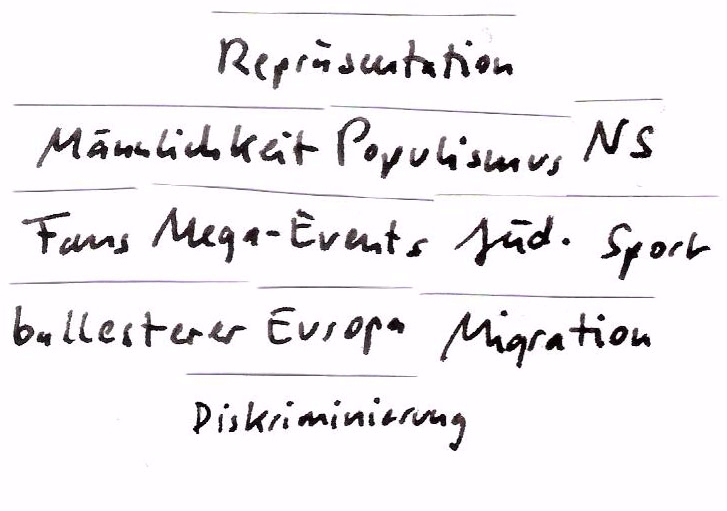 Repräsentation
Männlichkeit Populismus NS
Fans Mega-Events Jüd. Sport
ballesterer Europa Migration
Diskriminierung